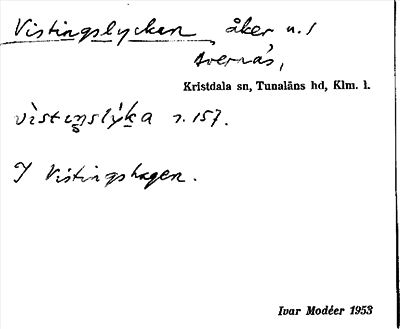 Vistingslyckan åker n. 1
Avernäs,
Kristdala sn, Tunaläns hd, Klm. l.
vìstiŋslýka r. 157.
I Vistingshagen.
Ivar Modéer 1953